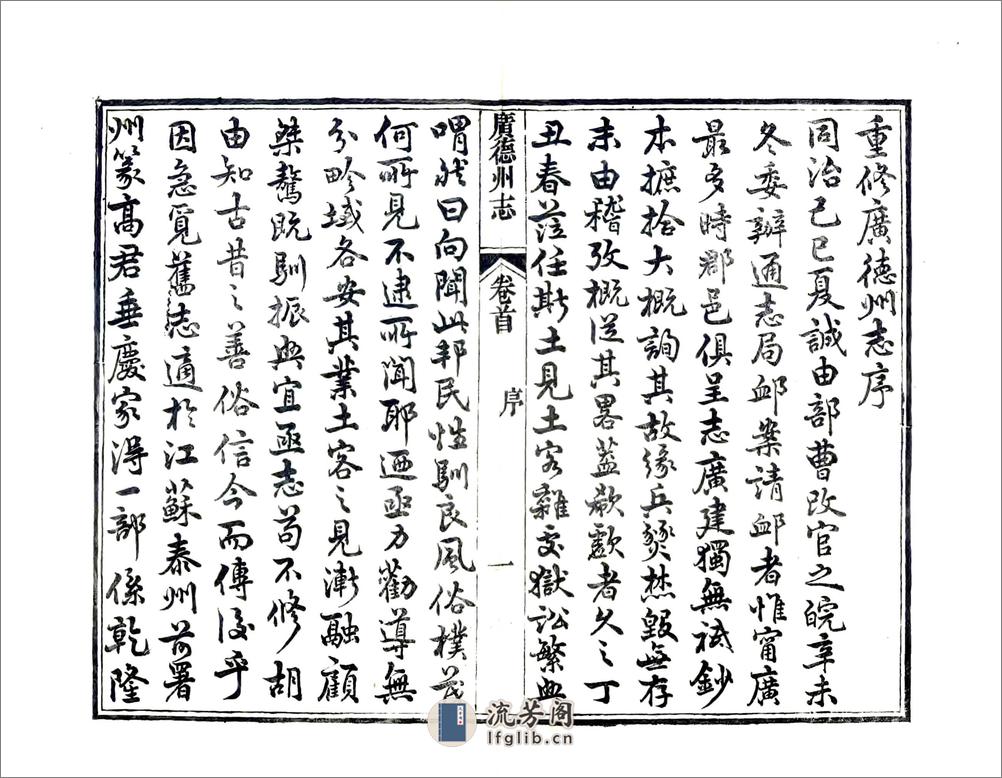 重修廣德州志序
同治己巳夏誠由部曹改官之皖辛未
冬委辦通志局卹案請卹者惟甯廣
最多時郡邑俱呈志廣建獨無祗鈔
本摭拾大概詢其故緣兵燹焚毀無存
末由稽攷概從其畧葢欷歔者久之丁
丑春蒞任斯土見土客雜處獄訟繁興
廣德州志
卷首
序
一
喟然曰向聞此邦民性馴良風俗樸茂
何所見不逮所聞耶迺亟力勸導無
分畛域各安其業土客之見漸融顧
桀驁既馴振興宜亟志苟不修胡
由知古昔之善俗信今而傳後乎
因急覓舊志適於江蘇泰州前署
州篆高君垂慶家得一部係乾隆
流芳阁
lfglib.cn